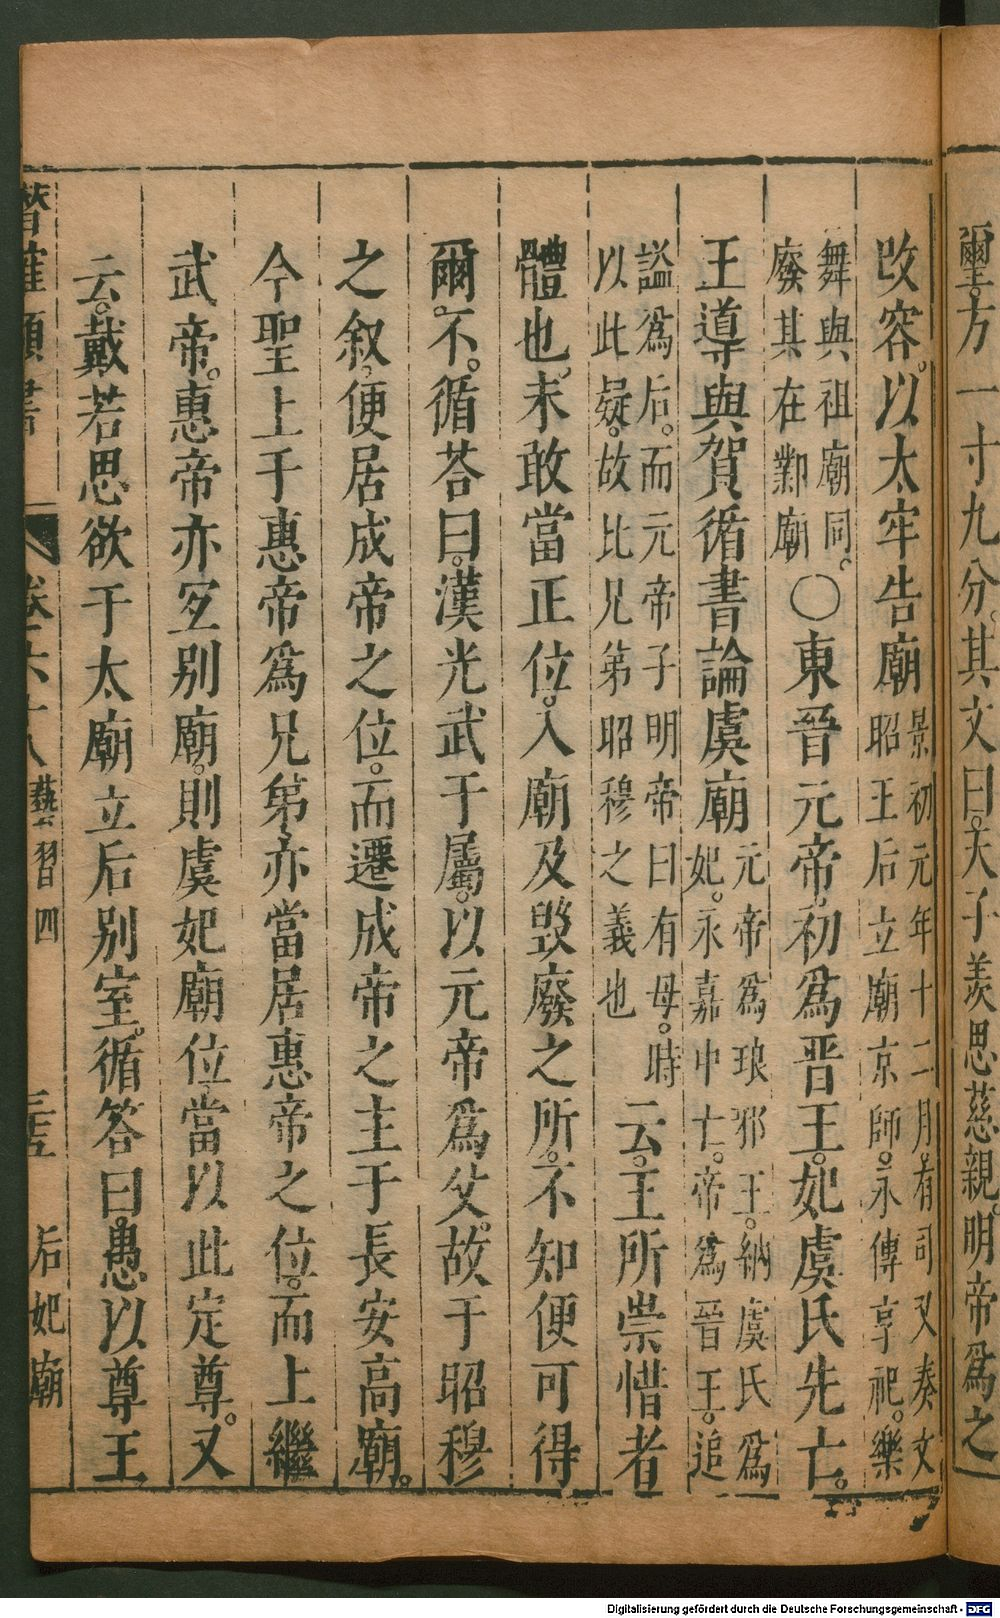 璽。方一寸九分。其文曰。天子羨思慈親。明帝爲之
改容。以太牢告廟景初元年十二月。有司又奏文
昭王后立廟京師。永傳享祀。樂
舞與祖廟同。
廢其在鄴廟
〇東晉元帝。初爲晋王。妃虞氏先亡。
王導與賀循書論虞廟元帝爲琅邪王。納虞氏爲
妃。永嘉中亡。帝爲晉王。追
謚爲后。而元帝子明帝曰有母。時
以此疑。故比兄第昭穆之義也
云。王所崇惜者
體也。未敢當正位。入廟及毁廢之所。不知便可得
爾。不。循荅曰。漢光武于屬。以元帝爲父。故于昭穆
之叙。便居成帝之位。而遷成帝之主于長安高廟。
今聖上于惠帝爲兄第。亦當居惠帝之位。而上繼
武帝。惠帝亦宐别廟。則虞妃廟位當以此定尊。又
云。戴若思欲于太廟立后别室。循答曰。愚以尊王
卷六十八 藝習四 后妃廟
Digitalisierung gefördert durch die Deutsche Forschungsgemeinschaft - DFG